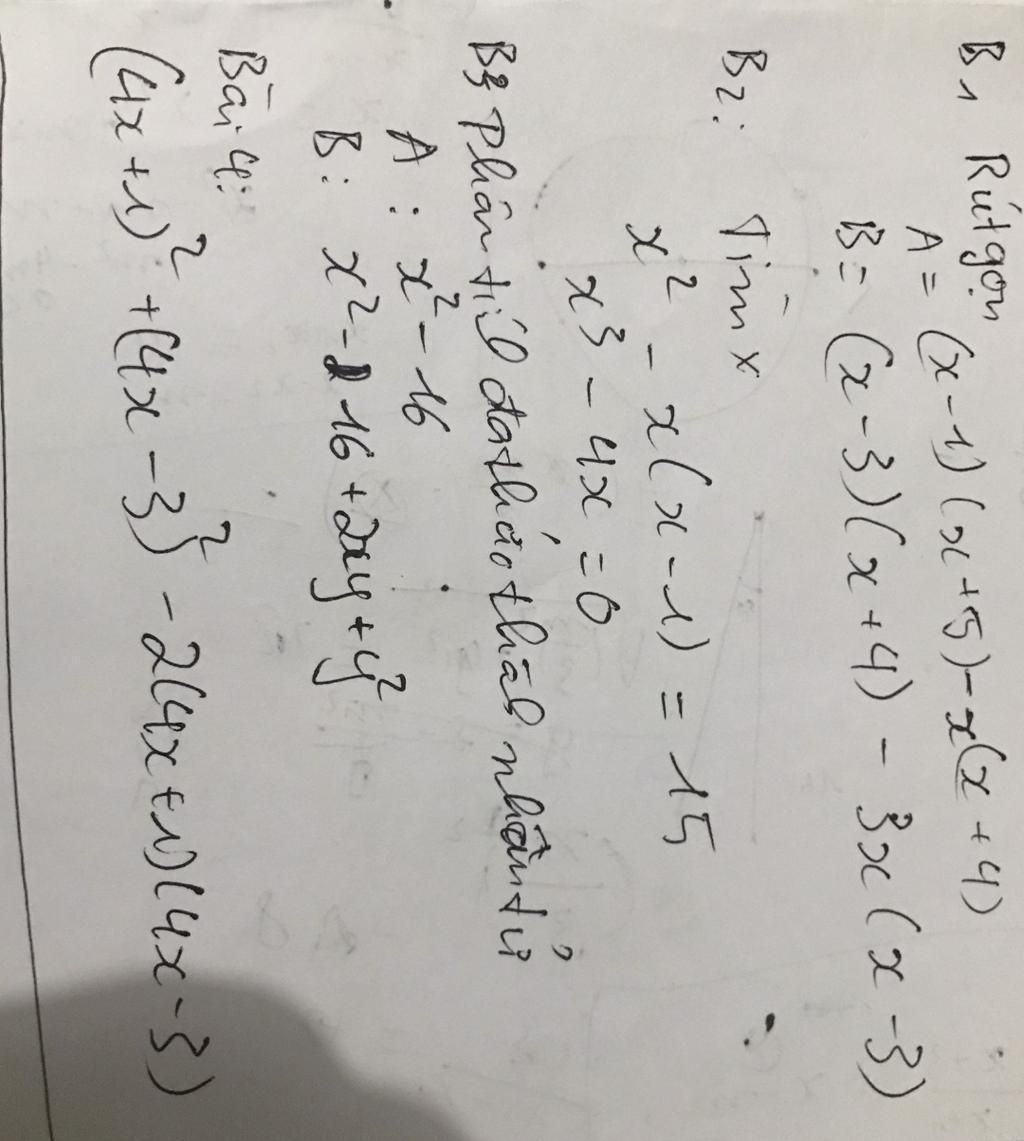 B1 Rút gọn
A = (x-1)(x+5)-x(x+4)
B= (x-3)(x+4) - 3x(x-3)
B2: Tìm x
x² - x(x-1) = 15
x³ - 4x = 0
B3 Phân tích đa thức thành nhân tử
A: x² - 16
B: x² - 16 + 2xy + y²
Bài 4:
(4x+1)² + (4x-3)² - 2(4x+1)(4x-3)